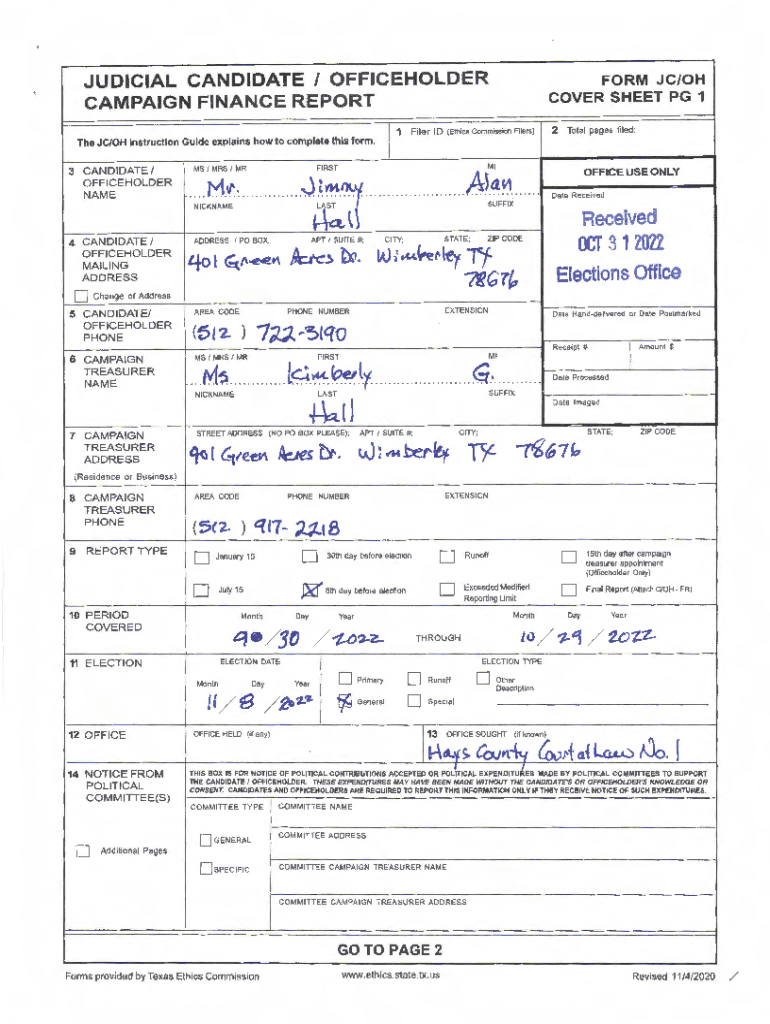 JUDICIAL CANDIDATE / OFFICEHOLDER
CAMPAIGN FINANCE REPORT
FORM JC/OH
COVER SHEET PG 1
The JC/OH Instruction Guide explains how to complete this form.
1 Filer ID (Ethics Commission Filers)
2 Total pages filed:
3 CANDIDATE / OFFICEHOLDER NAME
MS / MRS / MR FIRST MI
Mr. Jimmy Alan
NICKNAME LAST SUFFIX
Hall
OFFICE USE ONLY
Date Received
Received
OCT 31 2022
Elections Office
4 CANDIDATE / OFFICEHOLDER MAILING ADDRESS
Change of Address
ADDRESS / PO BOX; APT / SUITE #; CITY; STATE; ZIP CODE
401 Green Acres Dr. Wimberley TX
78676
5 CANDIDATE/ OFFICEHOLDER PHONE
AREA CODE PHONE NUMBER EXTENSION
(512 ) 722-3190
Date Hand-delivered or Date Postmarked
Receipt # Amount $
Date Processed
Date Imaged
6 CAMPAIGN TREASURER NAME
MS / MRS / MR FIRST MI
Ms Kimberly G.
NICKNAME LAST SUFFIX
Hall
7 CAMPAIGN TREASURER ADDRESS
(Residence or Business)
STREET ADDRESS (NO PO BOX PLEASE); APT / SUITE #; CITY; STATE; ZIP CODE
401 Green Acres Dr. Wimberley TX 78676
8 CAMPAIGN TREASURER PHONE
AREA CODE PHONE NUMBER EXTENSION
(512 ) 917-2218
9 REPORT TYPE
January 15 30th day before election Runoff 15th day after campaign treasurer appointment (Officeholder Only)
July 15 X 8th day before election Exceeded Modified Reporting Limit Final Report (Attach C/OH - FR)
10 PERIOD COVERED
Month Day Year Month Day Year
/ 30 / 2022 THROUGH 10 / 29 / 2022
11 ELECTION
ELECTION DATE ELECTION TYPE
Month Day Year
11 / 8 / 2022
Primary Runoff Other Description
X General Special
12 OFFICE
OFFICE HELD (if any)
13 OFFICE SOUGHT (if known)
Hays County Court at Law No. 1
14 NOTICE FROM POLITICAL COMMITTEE(S)
THIS BOX IS FOR NOTICE OF POLITICAL CONTRIBUTIONS ACCEPTED OR POLITICAL EXPENDITURES MADE BY POLITICAL COMMITTEES TO SUPPORT
THE CANDIDATE / OFFICEHOLDER. THESE EXPENDITURES MAY HAVE BEEN MADE WITHOUT THE CANDIDATE'S OR OFFICEHOLDER'S KNOWLEDGE OR
CONSENT. CANDIDATES AND OFFICEHOLDERS ARE REQUIRED TO REPORT THIS INFORMATION ONLY IF THEY RECEIVE NOTICE OF SUCH EXPENDITURES.
COMMITTEE TYPE COMMITTEE NAME
GENERAL
COMMITTEE ADDRESS
Additional Pages
SPECIFIC
COMMITTEE CAMPAIGN TREASURER NAME
COMMITTEE CAMPAIGN TREASURER ADDRESS
GO TO PAGE 2
Forms provided by Texas Ethics Commission www.ethics.state.tx.us Revised 11/4/2020